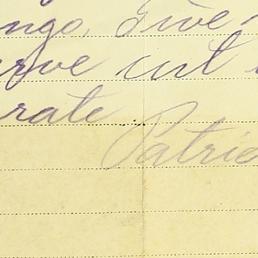 ngo, Give
rve cut
rate Patric